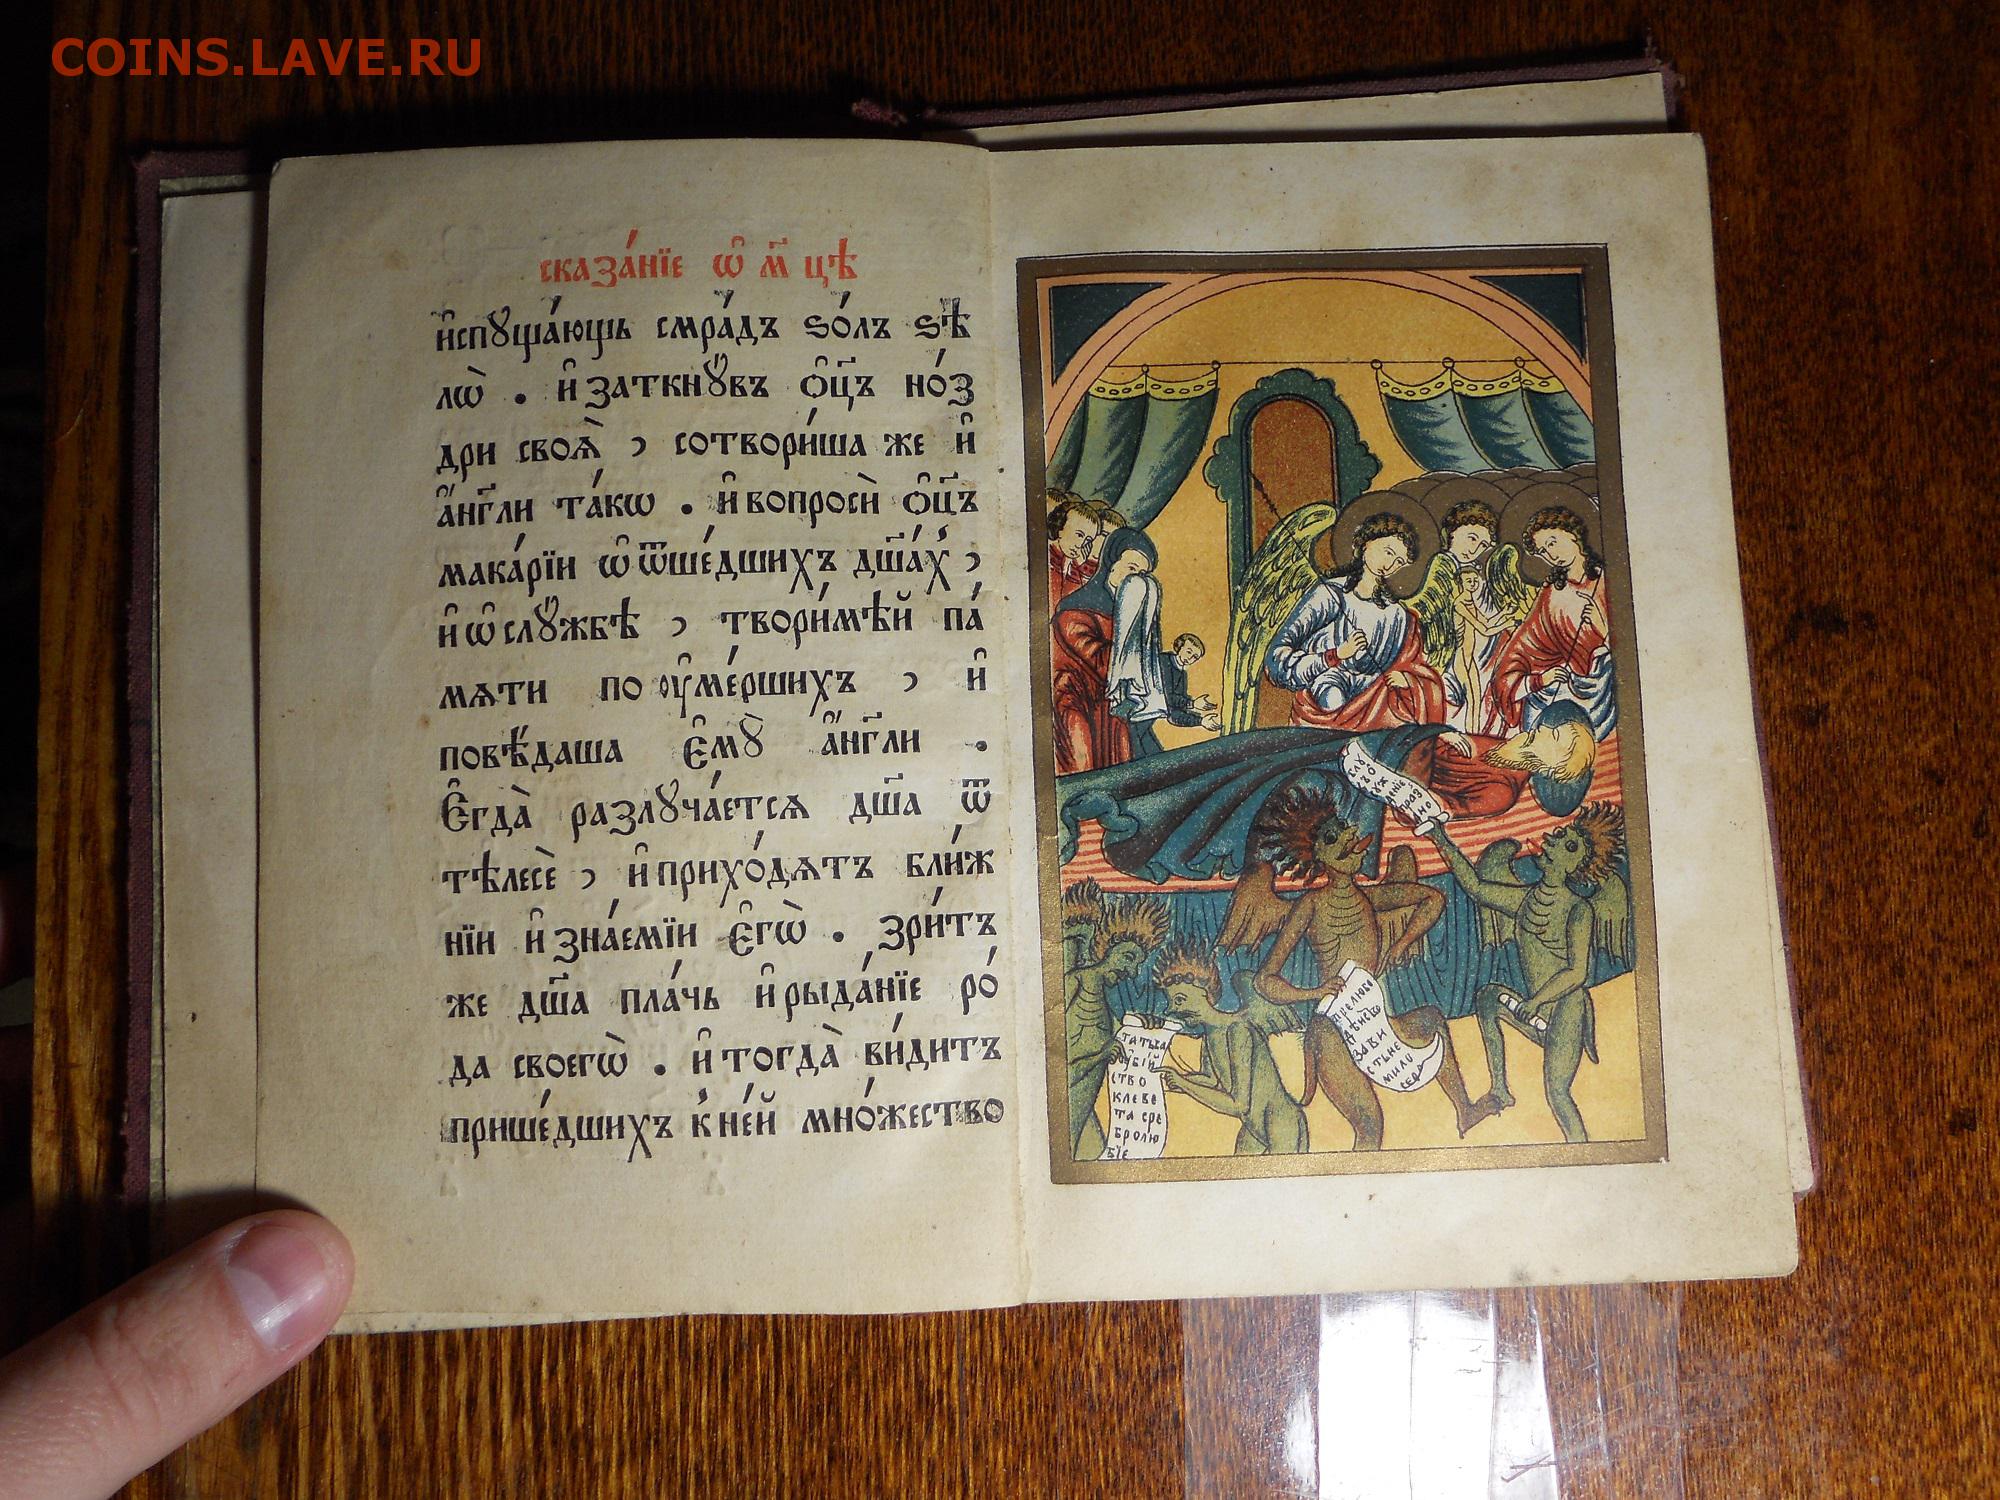 COINS.LAVE.RU
сказа́нїе ѡ҆ м҃ цѣ
и҆спꙋща́ющь смра́дъ ѕо́лъ ѕѣ
лѡ̀ . и҆ заткнꙋ́въ ѻ҆ц҃ъ но́з
дри своѧ̀ , сотвори́ша же и҆
а҆́нг҃ли та́кѡ . и҆ вопросѝ ѻ҆ц҃ъ
мака́рїи ѡ҆ ѿше́дшихъ дш҃а́хъ ,
и҆ ѡ҆ слꙋ́жбѣ , твори́мѣй па́
мѧти по ᲂу҆ме́ршихъ , и҆
повѣ́даша є҆мꙋ̀ а҆́нг҃ли .
Є҆гда̀ разлꙋча́етсѧ дш҃а ѿ
тѣлесѐ , и҆ прихо́дѧтъ бли́ж
нїи и҆ зна́емїи є҆гѡ̀ . зри́тъ
же дш҃а пла́чь и҆ рыда́нїе ро́
да своегѡ̀ . и҆ тогда̀ ви́дитъ
прише́дшихъ к̾ не́й мно́жество
татьба
ꙋбїй
ство
клеве
та сре
бролю
бїе
прелюбо
дѣйство
зави
сть не
мило
серд